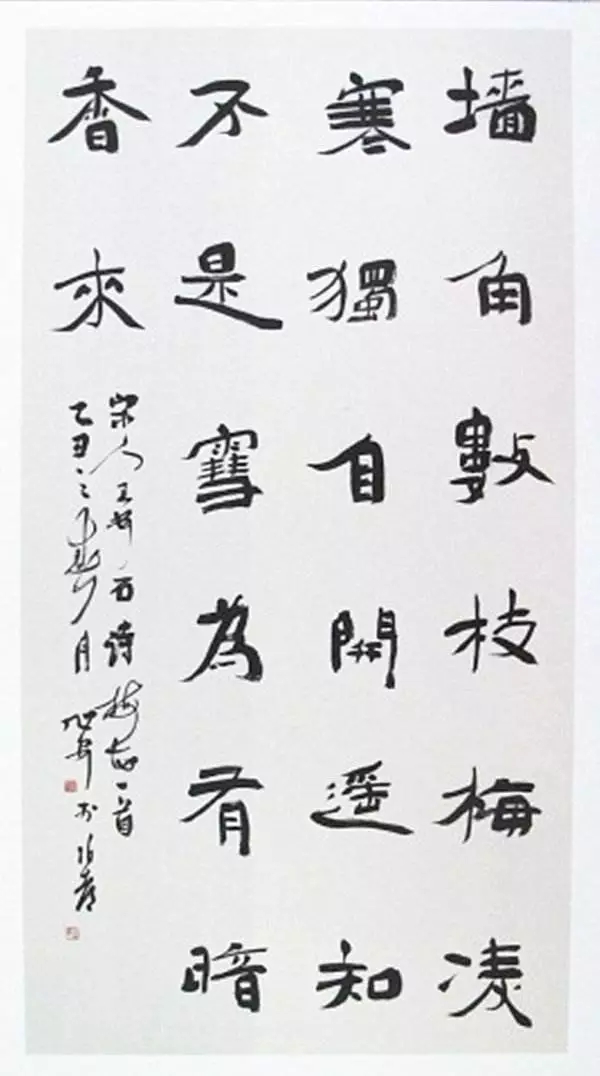 墙角數枝梅凌
寒獨自開遥知
不是雪為有暗
香來
宋人王安石詩梅花一首
乙丑之春月旭宇於